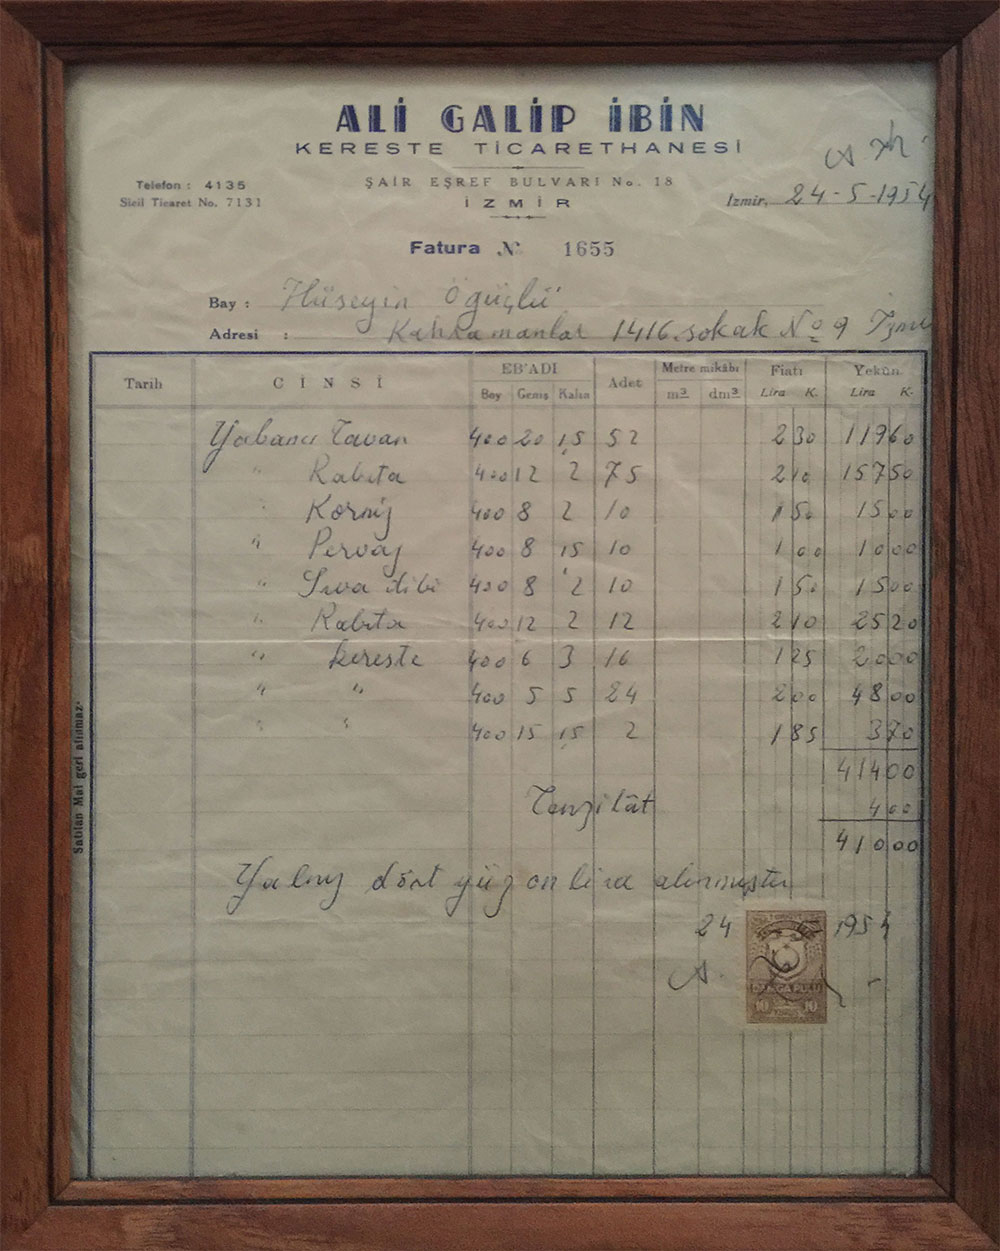 ALİ GALİP İBİN
KERESTE TİCARETHANESİ
Telefon : 4135
Sicil Ticaret No. 7131
ŞAİR EŞREF BULVARI No. 18
İZMİR
İzmir, 24-5-1954
Fatura № 1655
Bay : Hüseyin Öğüçlü
Adresi : Kahramanlar 1416. sokak No 9 İzmir
Tarih CİNSİ EB'ADI Adet Metre mikâbı Fiatı Yekûn
Boy Geniş Kalın m³ dm³ Lira K. Lira K.
Yabancı Tavan 400 20 1,5 52 2 30 119 60
" Rabıta 400 12 2 75 2 10 157 50
" Korniş 400 8 2 10 1 50 15 00
" Pervaz 400 8 1,5 10 1 00 10 00
" Sıva dibi 400 8 2 10 1 50 15 00
" Rabıta 400 12 2 12 2 10 25 20
" kereste 400 6 3 16 1 25 20 00
" " 400 5 5 24 2 00 48 00
" " 400 15 1,5 2 1 85 3 70
414 00
Tenzilât 4 00
410 00
Yalnız dört yüz on lira alınmıştır
24 1954
DAMGA PULU
10 10
Satılan Mal geri alınmaz.